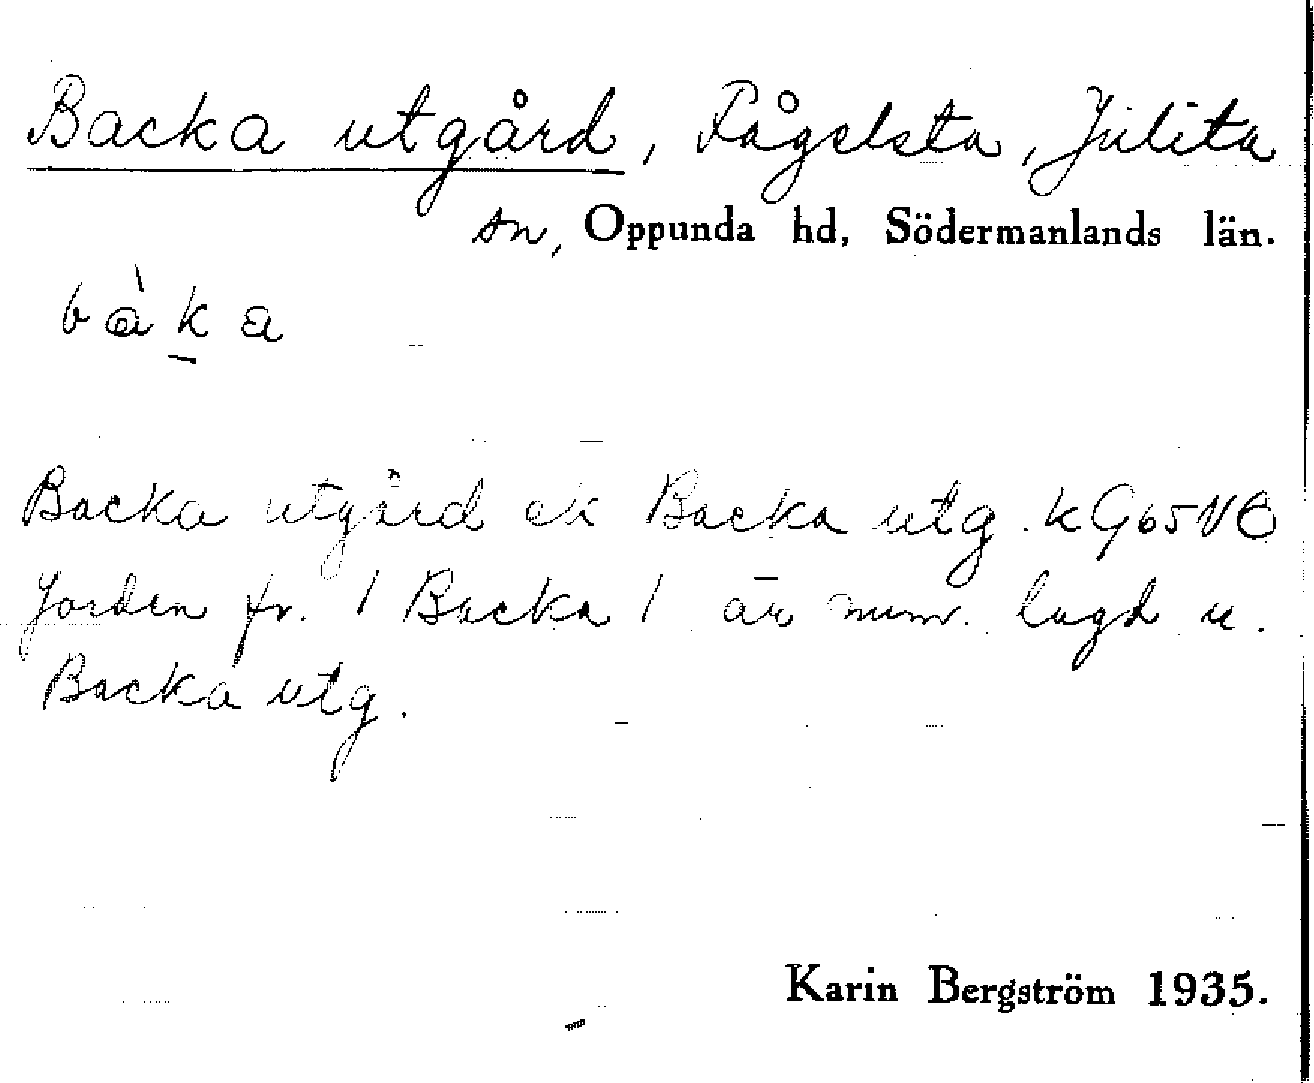 Backa utgård, Fågelsta, Julita
sn, Oppunda hd, Södermanlands län.
bàka
Backa utgård ek Backa utg. kG65NO
Jorden fr. / Backa / är num. lagd u.
Backa utg.
Karin Bergström 1935.